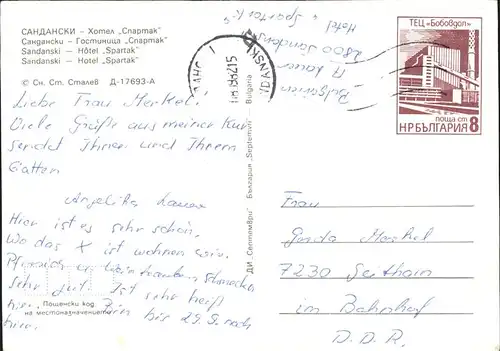 САНДАНСКИ – Хотел „Спартак“
Сандански – Гостиница „Спартак“
Sandanski – Hôtel „Spartak“
Sandanski – Hotel „Spartak“
© Сн. Ст. Сталев Д-17693-А
Liebe Frau Merkel!
Viele Grüße aus meiner Kur
sendet Ihnen und Ihrem
Gatten
Angelika
Hier ist es sehr schön.
Wo das X ist wohnen wir.
Pfirsich u. Weintrauben schmecken
sehr gut. Ist sehr heiß
hier. Bin bis 29.9. noch
hier.
Пощенски код
на местоназначението
ДИ „Септември“ България „Septemvri“ Bulgaria
Hotel „Spartak“
2800 Sandanski
Bulgarien
ТЕЦ „Бобовдол“
поща ст
НРБЪЛГАРИЯ 8
Frau
Gerda Merkel
7230 Geithain
im Bahnhof
D.D.R.